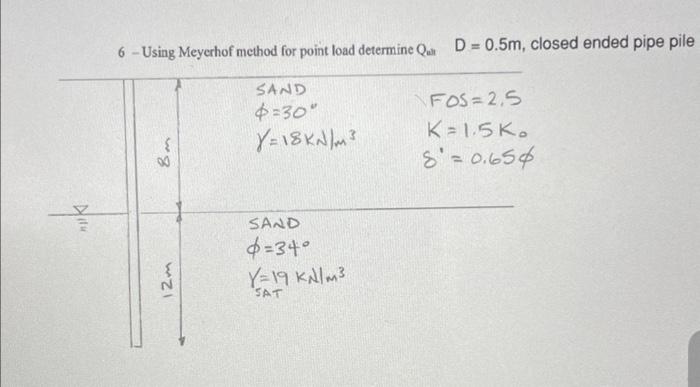 6 - Using Meyerhof method for point load determine Qult D = 0.5m, closed ended pipe pile
SAND
ϕ=30°
γ=18KN/m³
FOS=2.5
K=1.5K₀
δ'=0.65ϕ
8m
SAND
ϕ=34°
γSAT=19 KN/m³
12m